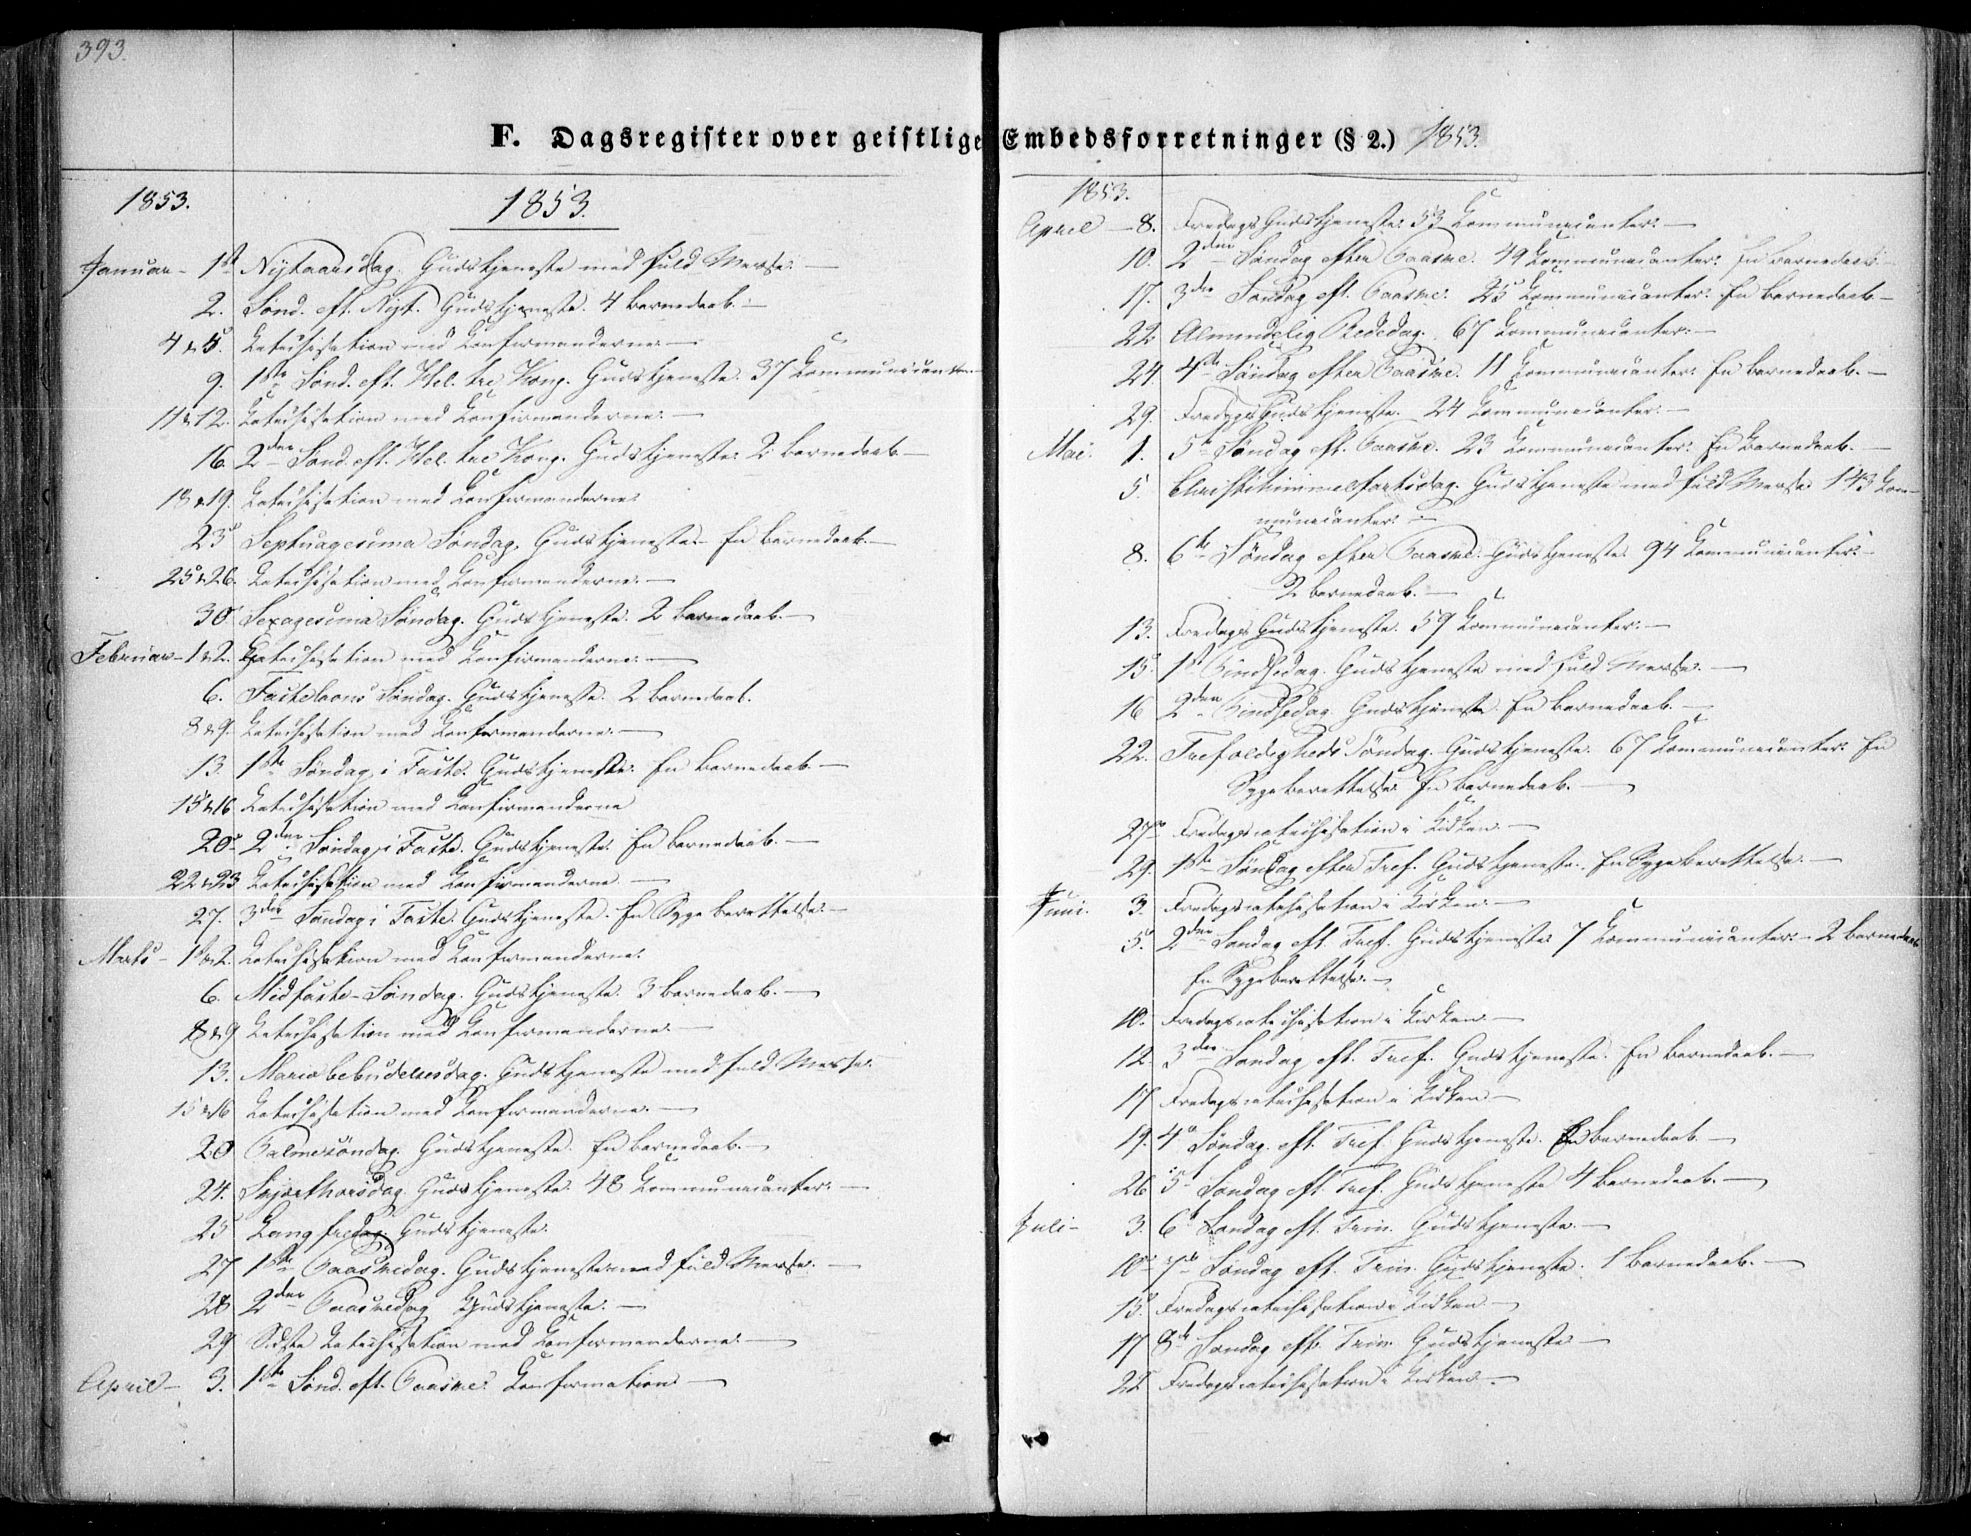 393.
F. Dagsregister over geistlige Embedsforretninger (§ 2.) 1853.
1853. 1853.
Januar - 1st Nytaarsdag. Gudstjeneste med fuld Messe. —
2. Sønd. eft. Nyt. Gudstjeneste. 4 Barnedaab. —
4 & 5. Katechisation med Konfirmanderne. —
9. 1ste Sønd. eft. Hel. tre Kong. Gudstjeneste. 37 Communicanter. —
11 & 12. Katechisation med Konfirmanderne. —
16. 2den Sønd. eft. Hel. tre Kong. Gudstjeneste. 2 Barnedaab. —
18 & 19. Katechisation med Konfirmanderne.
23 Septuagesima Søndag. Gudstjeneste. En Barnedaab. —
25 & 26. Katechisation med Konfirmanderne. —
30 Sexagesima Søndag. Gudstjeneste. 2 Barnedaab. —
Februar - 1 & 2. Katechisation med Konfirmanderne. —
6. Fastelavns Søndag. Gudstjeneste. 2 Barnedaab.
8 & 9. Katechisation med Konfirmanderne. —
13. 1ste Søndag i Faste. Gudstjeneste. En Barnedaab. —
15 & 16. Katechisation med Konfirmanderne
20 - 2den Søndag i Faste. Gudstjeneste. En Barnedaab. —
22 & 23 Katechisation med Konfirmanderne —
27. 3die Søndag i Faste. Gudstjeneste. En Sygeberettelse. —
Marts - 1 & 2. Katechisation med Konfirmanderne.
6. Midfaste-Søndag. Gudstjeneste. 3 Barnedaab. —
8 & 9 Katechisation med Konfirmanderne. —
13. Maria bebudelsesdag. Gudstjeneste med fuld Messe.
15 & 16 Katechisation med Konfirmanderne. —
20 Palmesøndag. Gudstjeneste. En Barnedaab. —
24. Skjærthorsdag. Gudstjeneste. 48 Communicanter. —
25 Langfredag Gudstjeneste.
27 1ste Paaskedag. Gudstjeneste med fuld Messe. —
28 2den Paaskedag Gudstjeneste. —
29 Sidste Katechisation med Konfirmanderne. —
April - 3. 1ste Sønd. eft. Paaske. Konfirmation —
1853.
April - 8. Fredags Gudstjeneste. 53 Communicanter. —
10. 2den Søndag efter Paaske. 49 Communicanter. En Barnedaab. —
17. 3die Søndag eft. Paaske. 25 Communicanter. En Barnedaab —
22 Almindelig Bededag. 67 Communicanter. —
24 4de Søndag efter Paaske. 11 Communicanter. En Barnedaab. —
29. Fredags Gudstjeneste. 24 Communicanter. —
Mai. 1. 5te Søndag eft. Paaske. 23 Communicanter. En Barnedaab. —
5. Christihimmelfartsdag. Gudstjeneste med fuld Messe 143 Com-
municanter. —
8. 6te Søndag efter Paaske. Gudstjeneste. 94 Communicanter. —
2 Barnedaab. —
13. Fredags Gudstjeneste. 59 Communicanter. —
15. 1st Pindsedag. Gudstjeneste med fuld Messe. —
16 2den Pindsedag. Gudstjeneste En Barnedaab. —
22. Trefoldigheds Søndag. Gudstjeneste. 67 Communicanter. En
Sygeberettelse. En Barnedaab. —
27 Fredagscatechisation i Kirken —
29. 1ste Søndag efter Tref. Gudstjeneste. En Sygeberettelse. —
Juni. 3. Fredagscatechisation i Kirken. —
5. 2den Søndag eft. Tref. Gudstjeneste 7 Communicanter. 2 Barnedaab
En Sygeberettelse. —
10. Fredagscatechisation i Kirken —
12. 3die Søndag eft. Tref. Gudstjeneste. En Barnedaab. —
17 Fredagscatechisation i Kirken —
19. 4de Søndag. eft. Tref. Gudstjeneste. En Barnedaab. —
26 5t Søndag eft. Tref. Gudstjeneste 4 Barnedaab. —
Juli - 3. 6t Søndag eft. Trin. Gudstjeneste. —
10 7de Søndag eft. Trin. Gudstjeneste. 1 Barnedaab. —
15. Fredagscatechisation i Kirken —
17 8de Søndag eft. Trin. Gudstjeneste —
22 Fredagscatechisation i Kirken —